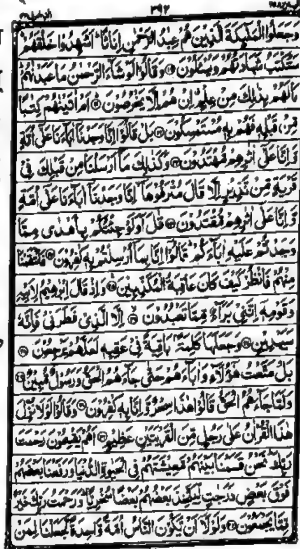 وَجَعَلُوا الْمَلٰٓئِكَةَ الَّذِيْنَ هُمْ عِبٰدُ الرَّحْمٰنِ اِنَاثًا ؕ اَشَهِدُوْا خَلْقَهُمْ ؕ
سَتُكْتَبُ شَهَادَتُهُمْ وَيُسْـَٔلُوْنَ ﴿۱۹﴾ وَقَالُوْا لَوْ شَآءَ الرَّحْمٰنُ مَا عَبَدْنٰهُمْ ؕ
مَا لَهُمْ بِذٰلِكَ مِنْ عِلْمٍ ۗ اِنْ هُمْ اِلَّا يَخْرُصُوْنَ ﴿۲۰﴾ اَمْ اٰتَيْنٰهُمْ كِتٰبًا
مِّنْ قَبْلِهٖ فَهُمْ بِهٖ مُسْتَمْسِكُوْنَ ﴿۲۱﴾ بَلْ قَالُوْۤا اِنَّا وَجَدْنَاۤ اٰبَآءَنَا عَلٰٓى اُمَّةٍ
وَّاِنَّا عَلٰٓى اٰثٰرِهِمْ مُّهْتَدُوْنَ ﴿۲۲﴾ وَكَذٰلِكَ مَاۤ اَرْسَلْنَا مِنْ قَبْلِكَ فِيْ
قَرْيَةٍ مِّنْ نَّذِيْرٍ اِلَّا قَالَ مُتْرَفُوْهَاۤ ۙ اِنَّا وَجَدْنَاۤ اٰبَآءَنَا عَلٰٓى اُمَّةٍ
وَّاِنَّا عَلٰٓى اٰثٰرِهِمْ مُّقْتَدُوْنَ ﴿۲۳﴾ قٰلَ اَوَلَوْ جِئْتُكُمْ بِاَهْدٰى مِمَّا
وَجَدْتُّمْ عَلَيْهِ اٰبَآءَكُمْ ؕ قَالُوْۤا اِنَّا بِمَاۤ اُرْسِلْتُمْ بِهٖ كٰفِرُوْنَ ﴿۲۴﴾ فَانْتَقَمْنَا
مِنْهُمْ فَانْظُرْ كَيْفَ كَانَ عَاقِبَةُ الْمُكَذِّبِيْنَ ﴿۲۵﴾ وَاِذْ قَالَ اِبْرٰهِيْمُ لِاَبِيْهِ
وَقَوْمِهٖۤ اِنَّنِيْ بَرَآءٌ مِّمَّا تَعْبُدُوْنَ ﴿۲۶﴾ اِلَّا الَّذِيْ فَطَرَنِيْ فَاِنَّهٗ
سَيَهْدِيْنِ ﴿۲۷﴾ وَجَعَلَهَا كَلِمَةًۢ بَاقِيَةً فِيْ عَقِبِهٖ لَعَلَّهُمْ يَرْجِعُوْنَ ﴿۲۸﴾
بَلْ مَتَّعْتُ هٰٓؤُلَآءِ وَاٰبَآءَهُمْ حَتّٰى جَآءَهُمُ الْحَقُّ وَرَسُوْلٌ مُّبِيْنٌ ﴿۲۹﴾
وَلَمَّا جَآءَهُمُ الْحَقُّ قَالُوْا هٰذَا سِحْرٌ وَّاِنَّا بِهٖ كٰفِرُوْنَ ﴿۳۰﴾ وَقَالُوْا لَوْلَا نُزِّلَ
هٰذَا الْقُرْاٰنُ عَلٰى رَجُلٍ مِّنَ الْقَرْيَتَيْنِ عَظِيْمٍ ﴿۳۱﴾ اَهُمْ يَقْسِمُوْنَ رَحْمَتَ
رَبِّكَ ؕ نَحْنُ قَسَمْنَا بَيْنَهُمْ مَّعِيْشَتَهُمْ فِي الْحَيٰوةِ الدُّنْيَا وَرَفَعْنَا بَعْضَهُمْ
فَوْقَ بَعْضٍ دَرَجٰتٍ لِّيَتَّخِذَ بَعْضُهُمْ بَعْضًا سُخْرِيًّا ؕ وَرَحْمَتُ رَبِّكَ خَيْرٌ
مِّمَّا يَجْمَعُوْنَ ﴿۳۲﴾ وَلَوْلَاۤ اَنْ يَّكُوْنَ النَّاسُ اُمَّةً وَّاحِدَةً لَّجَعَلْنَا لِمَنْ